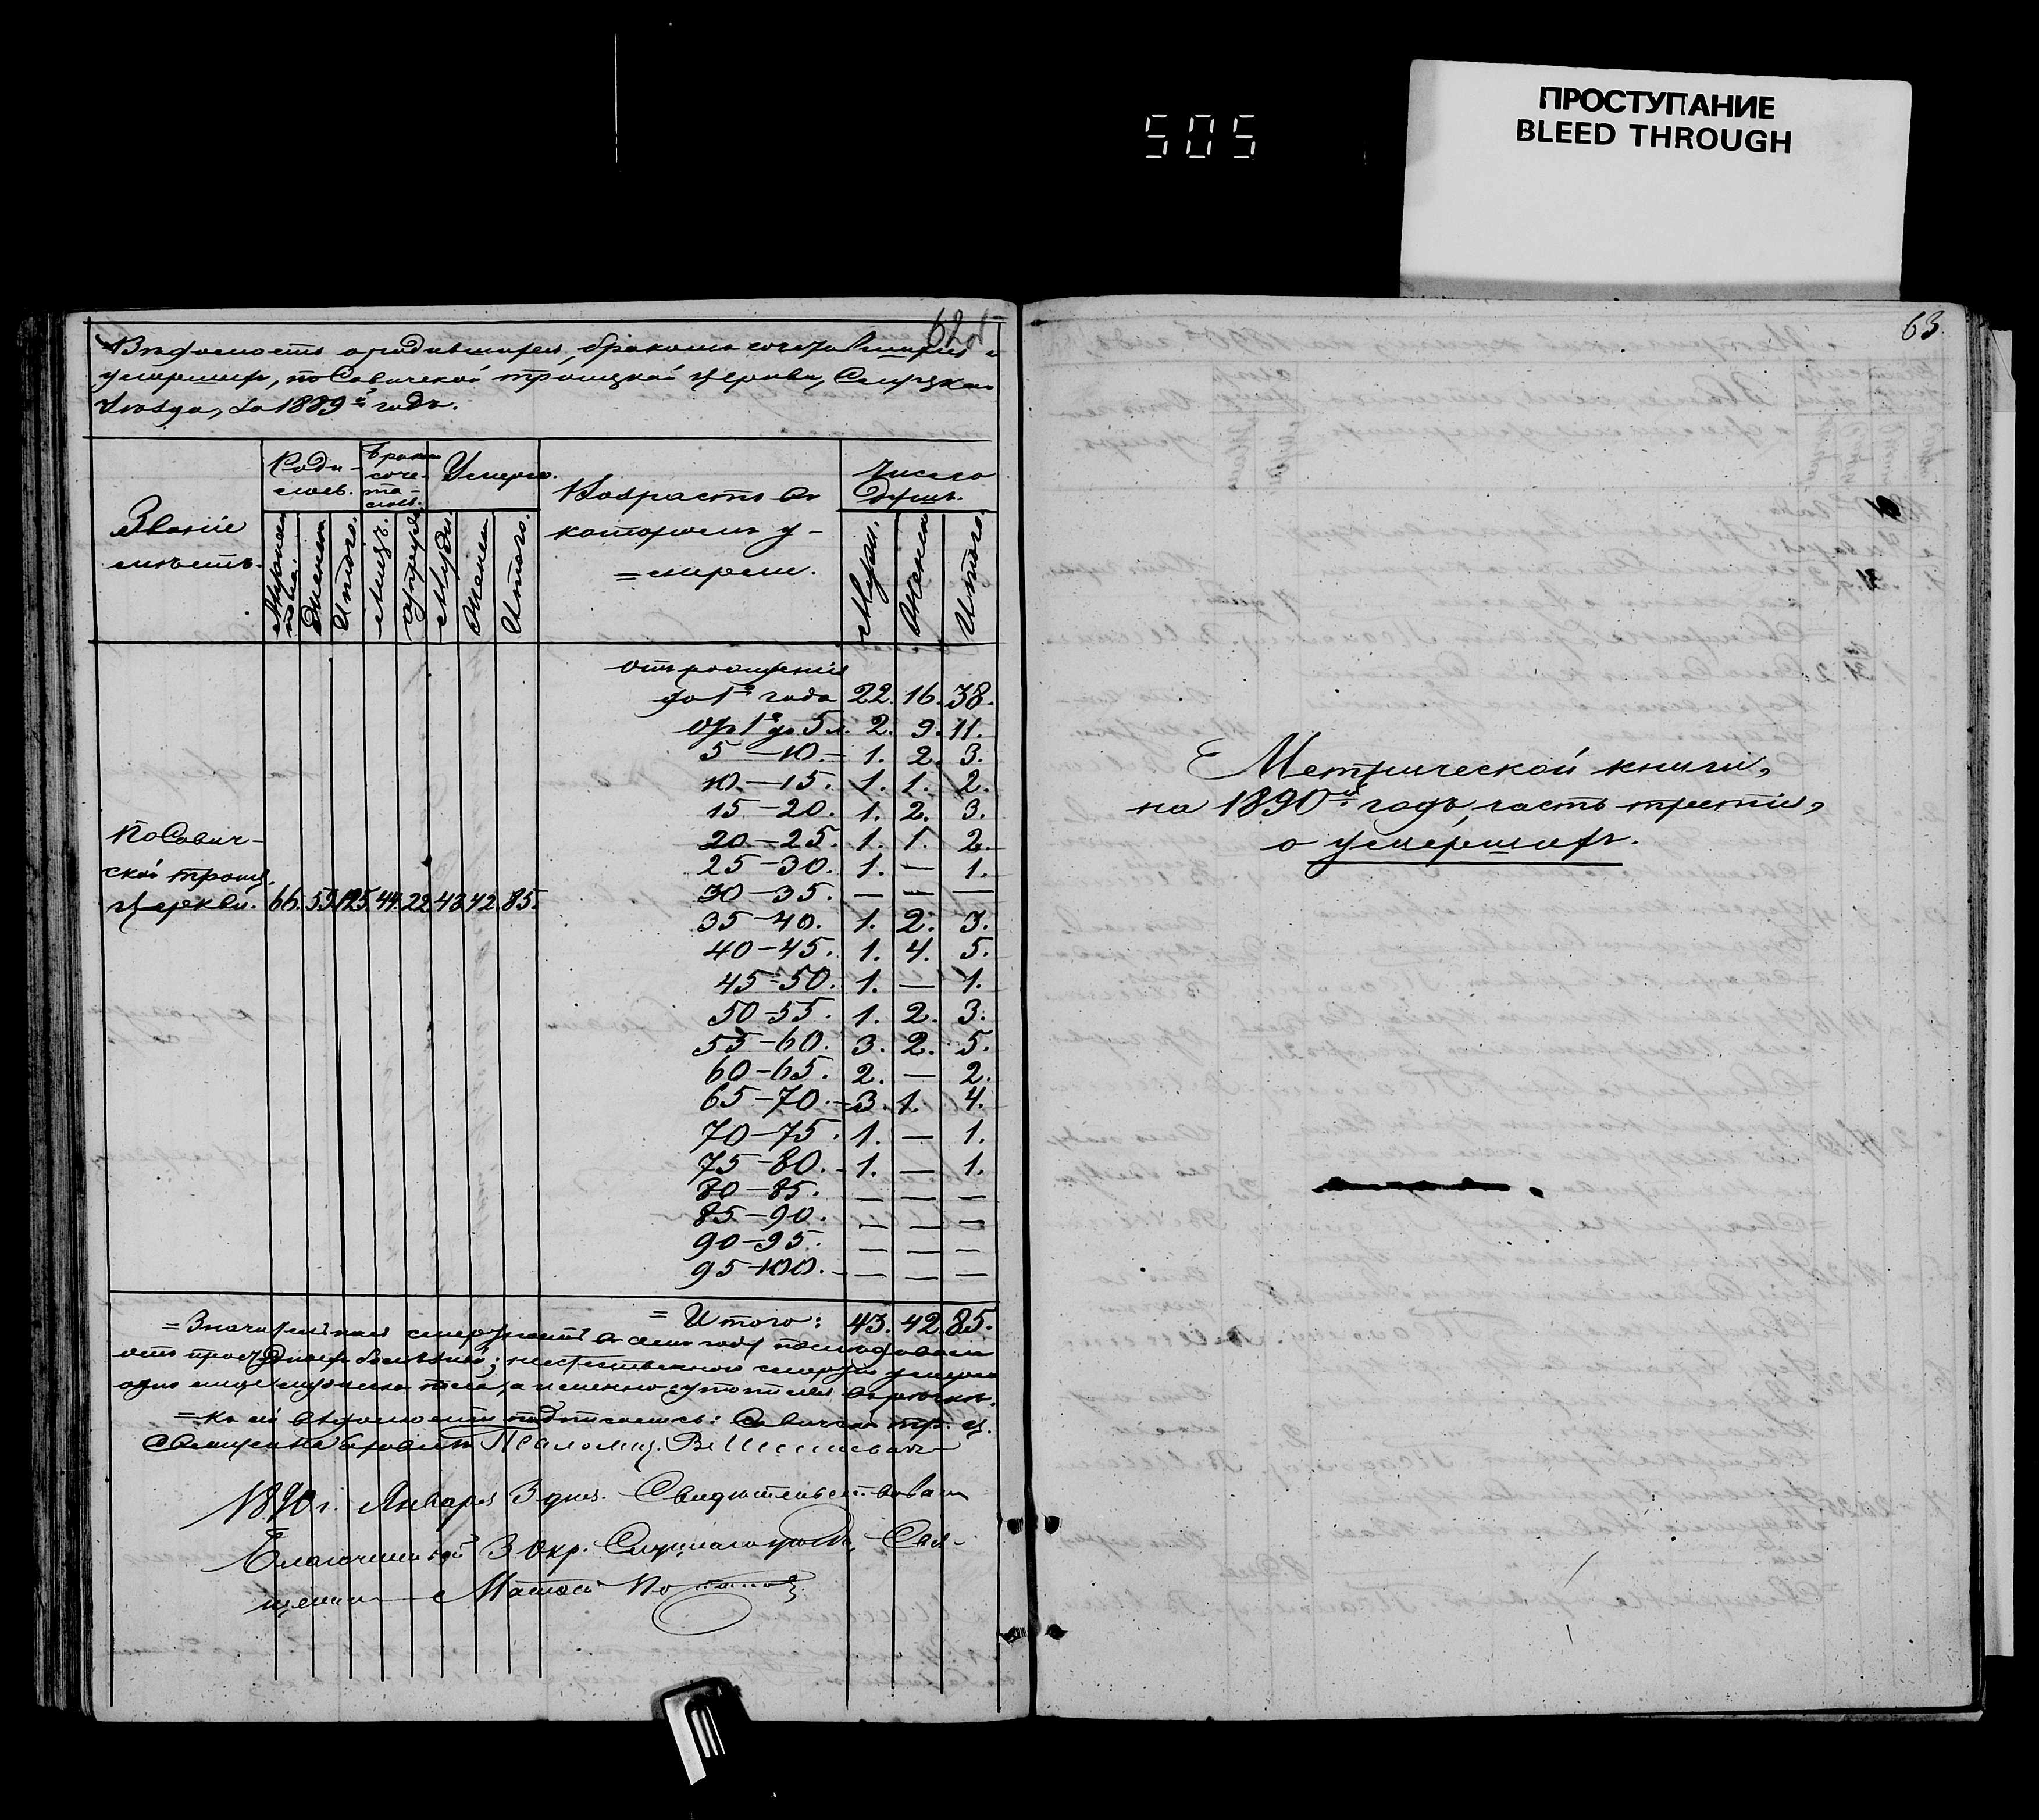 505
ПРОСТУПАНИЕ
BLEED THROUGH
62
Вѣдомость о родившихся, бракомъ сочетавшихся и
умершихъ, по Савичской троицкой церкви, Слуцкаго
уѣзда, за 1889й годъ.
Званіе мѣстъ.
Роди-
лось.
Бракомъ
соче-
та-
лось.
Умерло.
Возрастъ въ
которомъ у-
=мерли.
Число
душъ.
Мужеск. пола. Женск. Итого. Лицъ. Мужеск. Женск. Итого. Мужск. Женск. Итого.
отъ рожденія
до 1го года 22. 16. 38.
Отъ 1го до 5 л. 2. 9. 11.
5 — 10. — 1. 2. 3.
10. — 15. 1. 1. 2.
15 — 20. 1. 2. 3.
20. — 25. 1. 1. 2.
25 — 30. 1. — 1.
30 — 35. — — —
35 — 40. 1. 2. 3.
40 — 45. 1. 4. 5.
45 = 50. 1. — 1.
50 — 55. 1. 2. 3.
55 — 60. 3. 2. 5.
60 — 65. 2. — 2.
65 — 70. — 3. 1. 4.
70 — 75. 1. — 1.
75 — 80. — 1. — 1.
80 — 85. — — —
85 — 90. — — —
90 — 95. — — —
95 — 100. — — — —
По Савич-
ской троиц.
церкви. 66. 59. 125. 44. 22. 43. 42. 85.
= Итого: 43. 42. 85.
=Значительная смертность въ семъ году послѣдовала
отъ простудныхъ болѣзней; неестественною смертію умерло
одно лице мужеска пола, а именно: утопился
=Къ сей вѣдомости подписались: Савичской тр. ц.
Священно
1890 г. Января 3 дня. Свидѣтельствовалъ
Благочинный 3 Окр. Слуцкаго уѣзда, Свя-
щенникъ
63.
Метрической книги,
на 1890й годъ, часть третія,
о умершихъ.